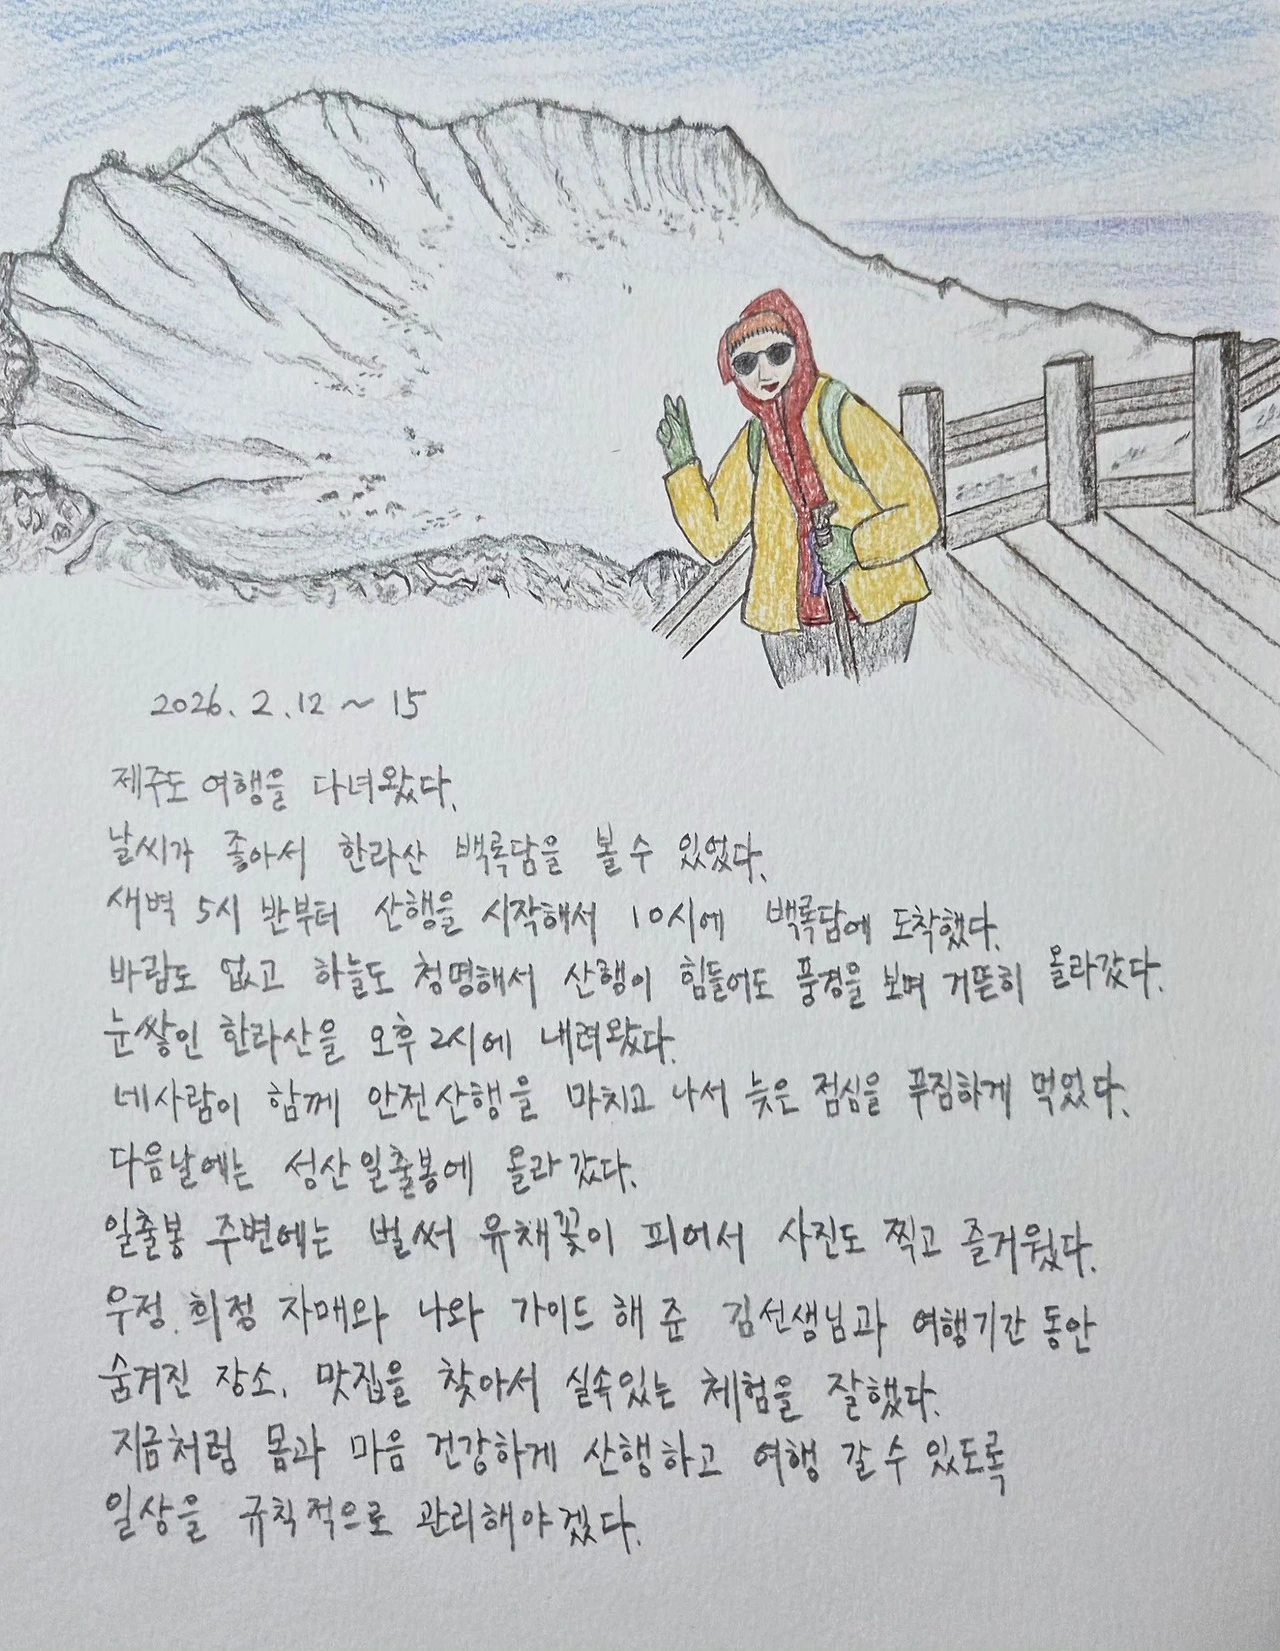 2026. 2. 12 ~ 15
제주도 여행을 다녀왔다.
날씨가 좋아서 한라산 백록담을 볼 수 있었다.
새벽 5시 반부터 산행을 시작해서 10시에 백록담에 도착했다.
바람도 없고 하늘도 청명해서 산행이 힘들어도 풍경을 보며 거뜬히 올라갔다.
눈쌓인 한라산을 오후 2시에 내려왔다.
네사람이 함께 안전산행을 마치고 나서 늦은 점심을 푸짐하게 먹었다.
다음날에는 성산일출봉에 올라갔다.
일출봉 주변에는 벌써 유채꽃이 피어서 사진도 찍고 즐거웠다.
우정.희정 자매와 나와 가이드 해 준 김선생님과 여행기간 동안
숨겨진 장소, 맛집을 찾아서 실속있는 체험을 잘했다.
지금처럼 몸과 마음 건강하게 산행하고 여행 갈 수 있도록
일상을 규칙적으로 관리해야겠다.